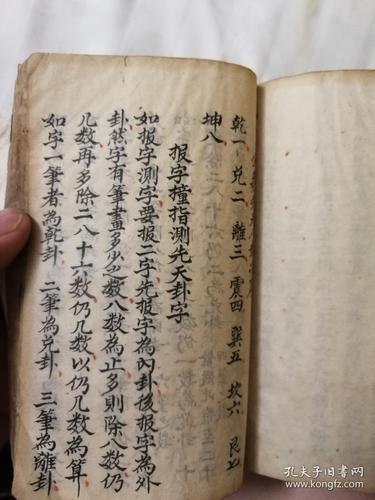 乾一 兑二 離三 震四 巽五 坎六 艮七
坤八
报字撞指测先天卦字
如报字测字要报二字先报字為內卦後报字為外
卦然字有筆畫多少之数八数為止多則除八数仍
几数再多除二八十六数仍几数以仍几数為算
如字一筆者為乾卦 二筆為兑卦 三筆為離卦
孔夫子旧书网